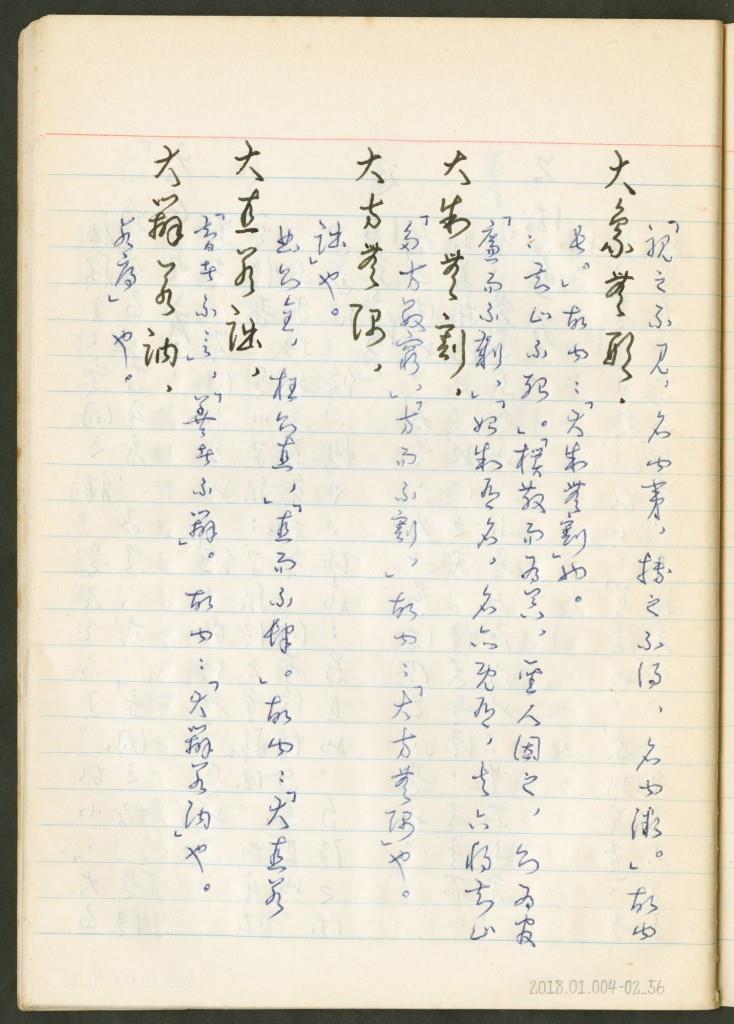 若辱」也。
大辯若訥，
「智者不言」，「善者不辯」。故曰：「大辯若訥」也。
大直若詘，
曲則全，枉則直，」「直而不肆。」故曰：「大直若
詘」也。
大方無隅，
「多言數窮」，「方而不割，」故曰：「大方無隅」也。
大制無割，
「廉而不劌」，「始制有名，名亦既有，夫亦將知止
：知止不殆。」「樸散而為器，聖人因之，則為官
長。」故曰：「大制無割」也。
大象無形．
「視之不見，名曰夷，搏之不得，名曰微。」故曰
2018.01.004-02_56